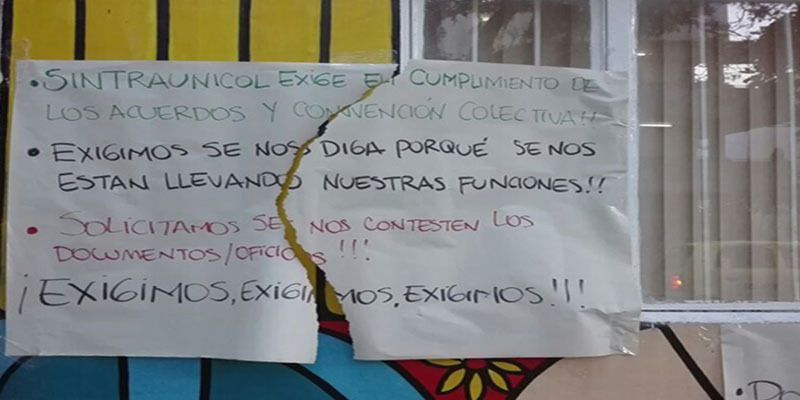 • SINTRAUNICOL EXIGE EL CUMPLIMIENTO DE
LOS ACUERDOS Y CONVENCIÓN COLECTIVA!!
• EXIGIMOS SE NOS DIGA PORQUÉ SE NOS
ESTAN LLEVANDO NUESTRAS FUNCIONES!!
• SOLICITAMOS SE NOS CONTESTEN LOS
DOCUMENTOS/OFICIOS!!!
¡EXIGIMOS, EXIGIMOS, EXIGIMOS!!!